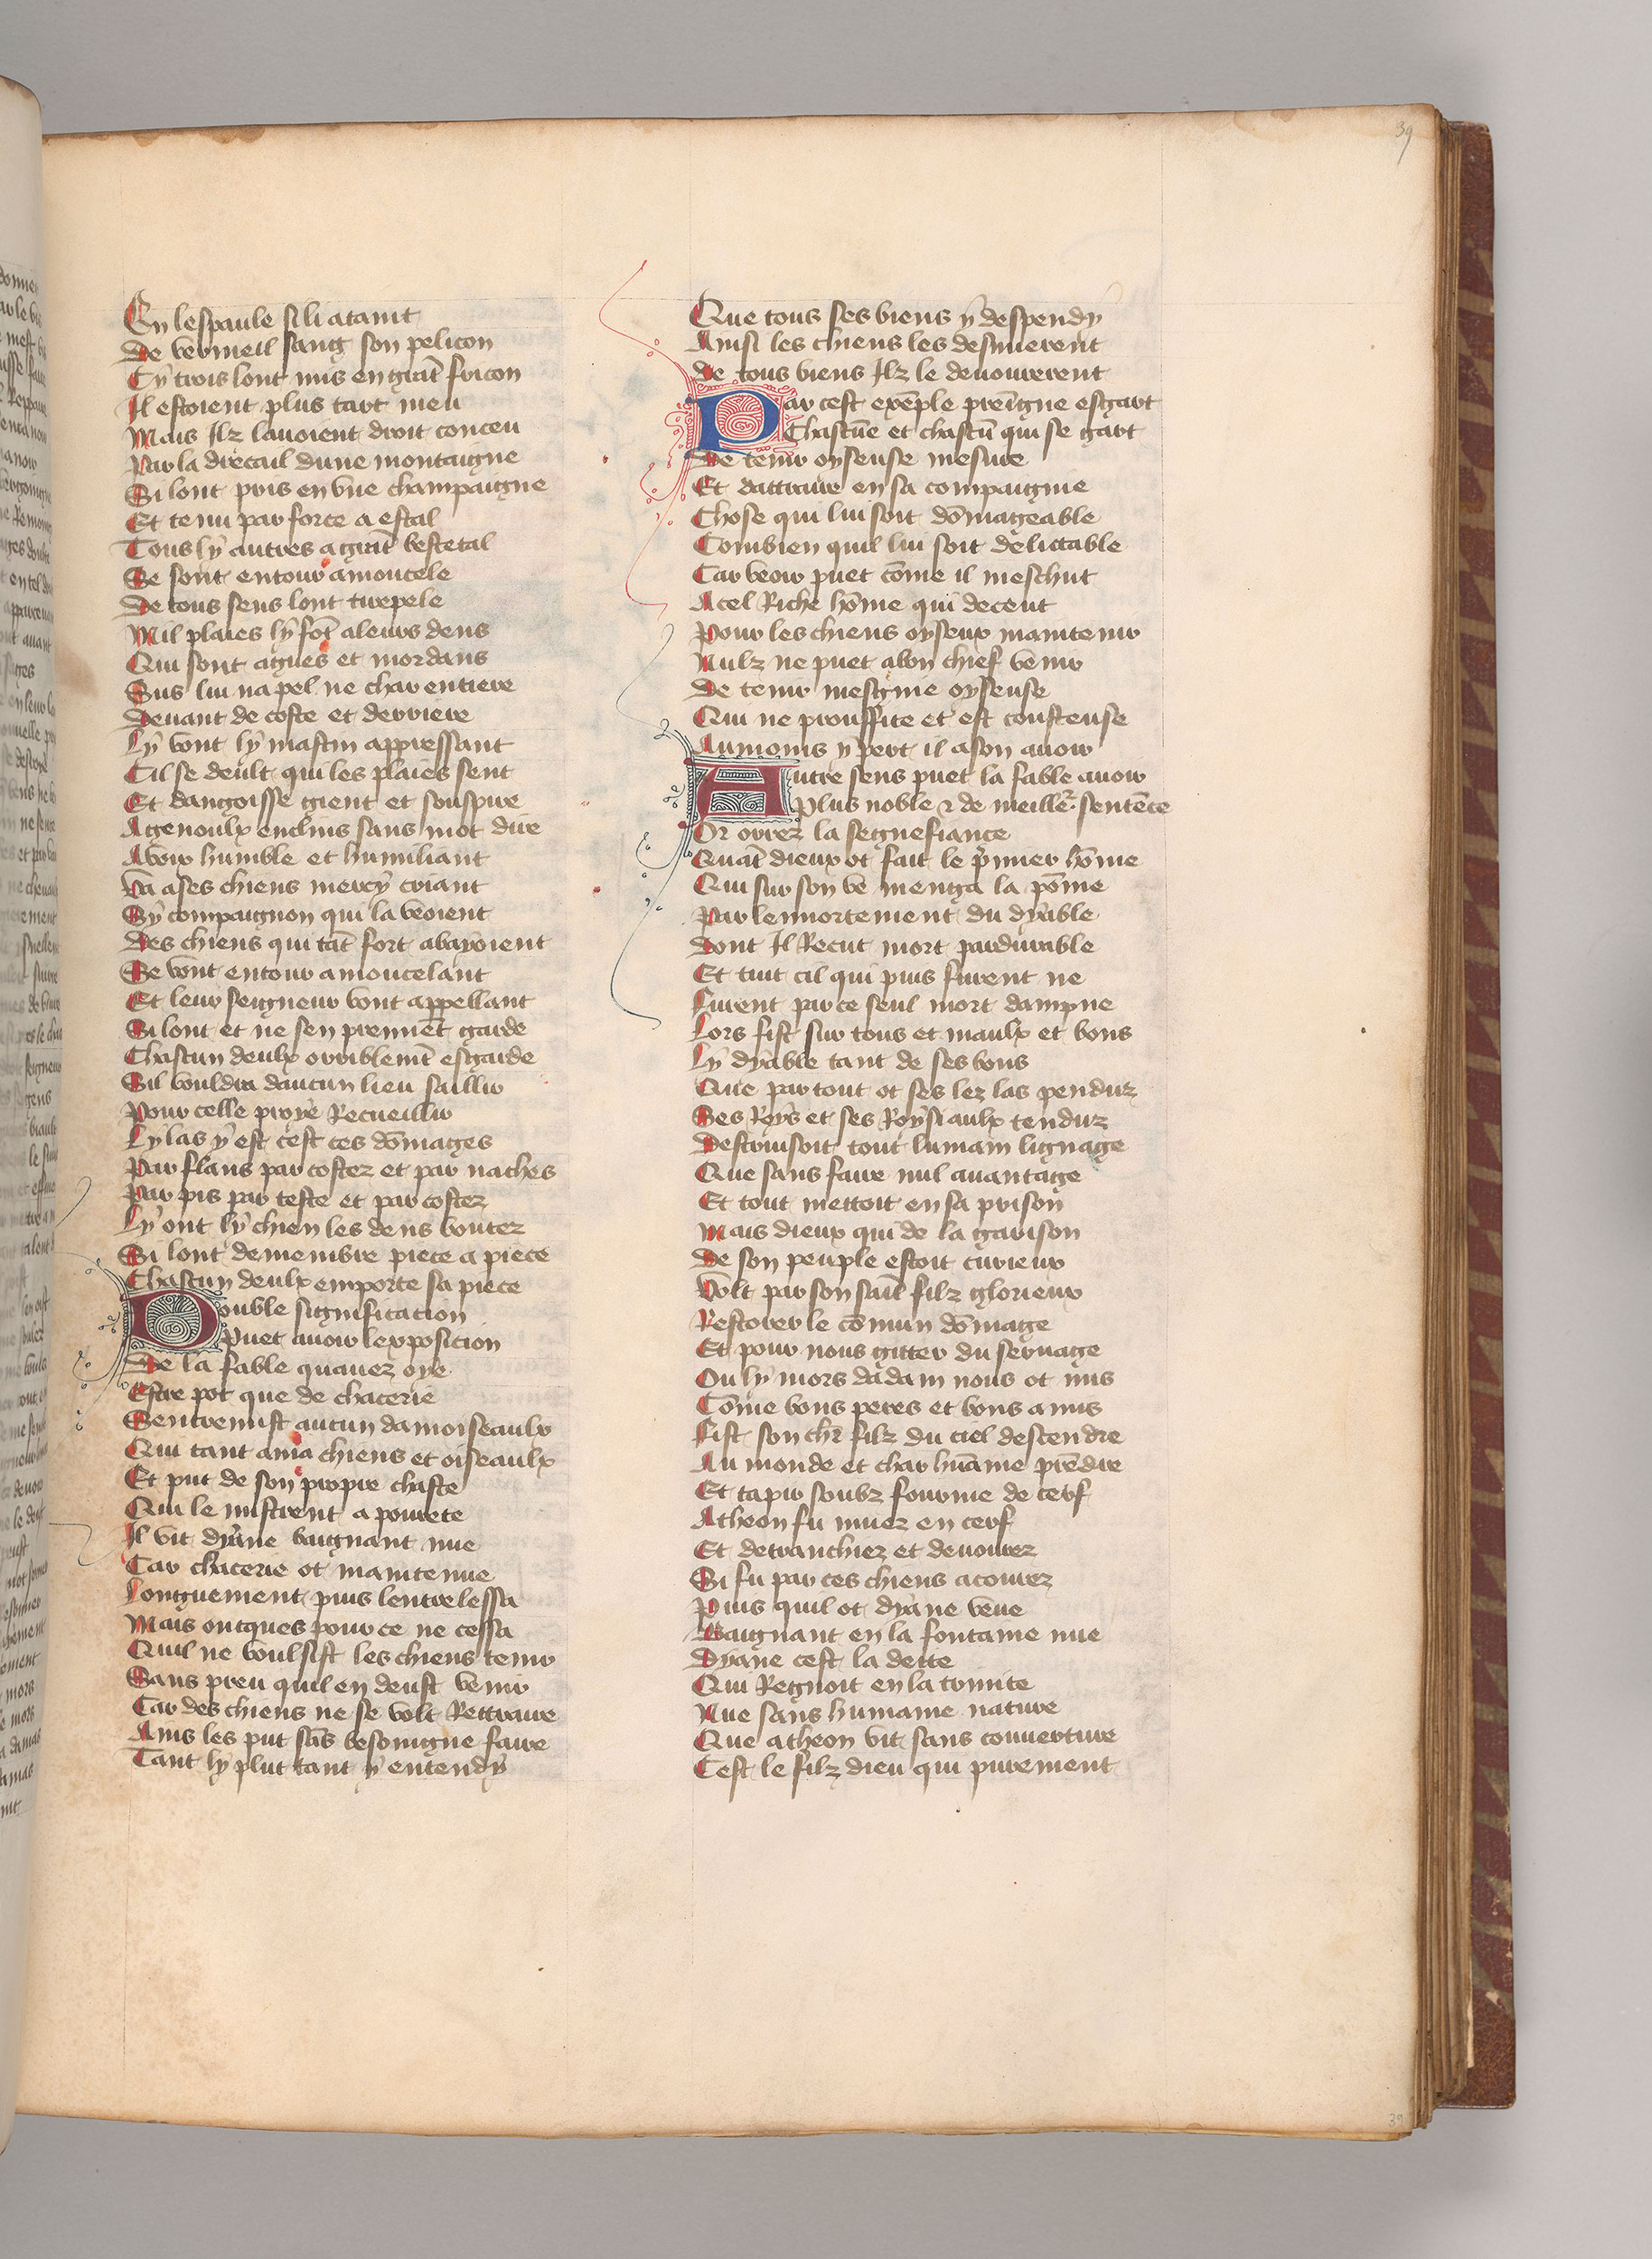 39
En lespaule si li ataint
De vermeil sang son pelicon
Cy trois lont mis en grāt fricon
Il estoient plus tart meu
Mais Ilz lauoient droit conceu
Par la drecail dune montaigne
Si lont pris en vne champaigne
Et tenu par force a estal
Tous ly autres a grāt bestetal
Se sont entour amoncele
De tous sens lont tirepele
Mil plaies ly fōt a leurs dens
Qui sont agues et mordans
Sus lui na pel ne char entiere
Deuant de coste et derriere
Ly vont ly mastin appressant
Cil se deult qui les plaies sent
Et dangoisse gient et souspire
A genoulx enclins sans mot dire
A voix humble et humiliant
Va a ses chiens mercy criant
Sy compaignon qui la veoient
Des chiens qui tāt fort abayoient
Se vont entour amoncelant
Et leur seigneur vont appellant
Si lont et ne sen prennēt garde
Chascun deulx orriblemēt esgarde
Sil vouldra daucun lieu saillir
Pour celle proye Recueillir
Ly las y est cest ces dōmages
Par flans par costez et par naches
Par pis par teste et par costez
Ly ont ly chien les dens boutez
Si lont demembre piece a piece
Chascun deulx emporte sa piece
Double signification
Puet auoir lexposition
De la fable quauez oye
Estre pot que de chacerie
Sentremist aucun damoiseaulx
Qui tant ama chiens et oiseaulx
Et put de son propre chaste
Qui le mistrent a pourete
Il vit dyane baignant nue
Car chacerie ot maintenue
Longuement puis lentrelessa
Mais oncques pour ce ne cessa
Quil ne voulsist les chiens tenir
Sans preu quil en deust venir
Car des chiens ne se volt Rettraire
Ains les put sās besoingne faire
Tant ly plut tant y entendy
Que tous ses biens y despendy
Ainsi les chiens les desmierent
De tous biens Ilz le deuourerent
Par cest exēple preīgne esgart
Chascūe et chascū qui se gart
De tenir oyseuse mesure
Et dattraire en sa compaignie
Chose qui lui soit dōmageable
Combien quil lui soit delictable
Car veoir puet cōme il meschut
A cel Riche hōme qui decent
Pour les chiens oyseux maintenir
Nulz ne puet a bon chief venir
De tenir mesgnie oyseuse
Qui ne prouffite et est cousteuse
Au moins y pert il a son auoir
Autre sens puet la fable auoir
Plus noble & de meille' sentēce
Or orrez la segnefiance
Quāt dieux ot fait le p̄mier hōme
Qui sur son ve menga la pōme
Par lennortement du dyable
Dont Il Recut mort pardurable
Et tuit cil qui puis furent ne
Furent par ce seul mort dampne
Lors fist sur tous et maulx et bons
Ly dyable tant de ses bons
Que par tout ot ses lez las penduz
Ses Roys et ses Roysiaulx tenduz
Destruisoit tout lumain lignage
Que sans faire nul auantage
Et tout mettoit en sa prison
Mais dieux qui de la garison
De son peuple estoit curieux
Volt par son saīt filz glorieux
Restorer le cōmun dōmage
Et pour nous gitter du seruage
Ou ly mors dadam nous ot mis
Cōme bons peres et bons amis
Fist son chr̄ filz du ciel descendre
Au monde et char hūaine prēdre
Et tapir soubz fourme de cerf
Atheon fu muez en cerf
Et detranchiez et deuourez
Si fu par ces chiens acourez
Puis quil ot dyane veue
Baignant en la fontaine nue
Dyane cest la deite
Qui Regnoit en la trinite
Nue sans humaine nature
Que atheon vit sans couuerture
Cest le filz dieu qui purement
39